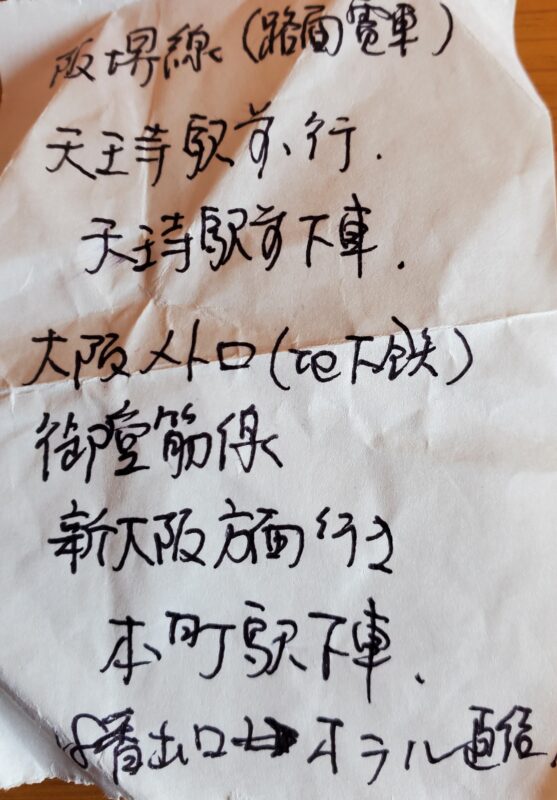 阪堺線(路面電車)
天王寺駅前行.
天王寺駅前下車.
大阪メトロ(地下鉄)
御堂筋線
新大阪方面行き
本町駅下車.
番出口 ホテル直